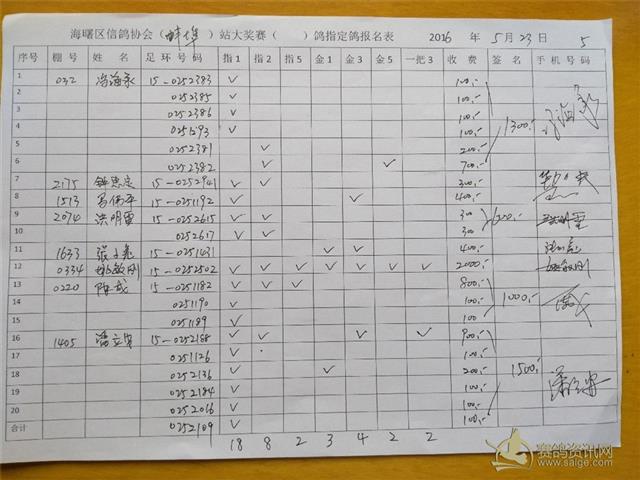 海曙区信鸽协会（蚌埠）站大奖赛（ ）鸽指定鸽报名表 2016 年 5月23日 5
序号 棚号 姓名 足环号码 指1 指2 指5 金1 金3 金5 一把3 收费 签名 手机号码
1 032 15-0252383 ✓ 100.-
2 0252385 ✓ 100.-
3 0252386 ✓ 100.-
4 0251293 ✓ 100.- 1300.-
5 0252381 ✓ 200.-
6 0252382 ✓ ✓ 700.-
7 2175 15-0252941 ✓ ✓ 300.-
8 1513 15-0251192 ✓ ✓ 400.-
9 2074 洪明雷 15-0252615 ✓ ✓ 300 600.-
10 0252617 ✓ ✓ 300
11 1633 15-0251431 ✓ ✓ 400.-
12 0334 姚敏刚 15-0252502 ✓ ✓ ✓ ✓ ✓ ✓ ✓ 2000.-
13 0220 陈成 15-0251182 ✓ ✓ ✓ 800.-
14 0251190 ✓ 100 1000.-
15 0251189 ✓ 100
16 1405 15-0252188 ✓ ✓ ✓ ✓ 900.-
17 0251126 ✓ 100.-
18 0252136 ✓ ✓ 200.- 1500.-
19 0252184 ✓ 100.-
20 0252016 ✓ 100.-
合计 0252109 ✓ 100.-
18 8 2 3 4 2 2
赛鸽资讯网
www.saige.com